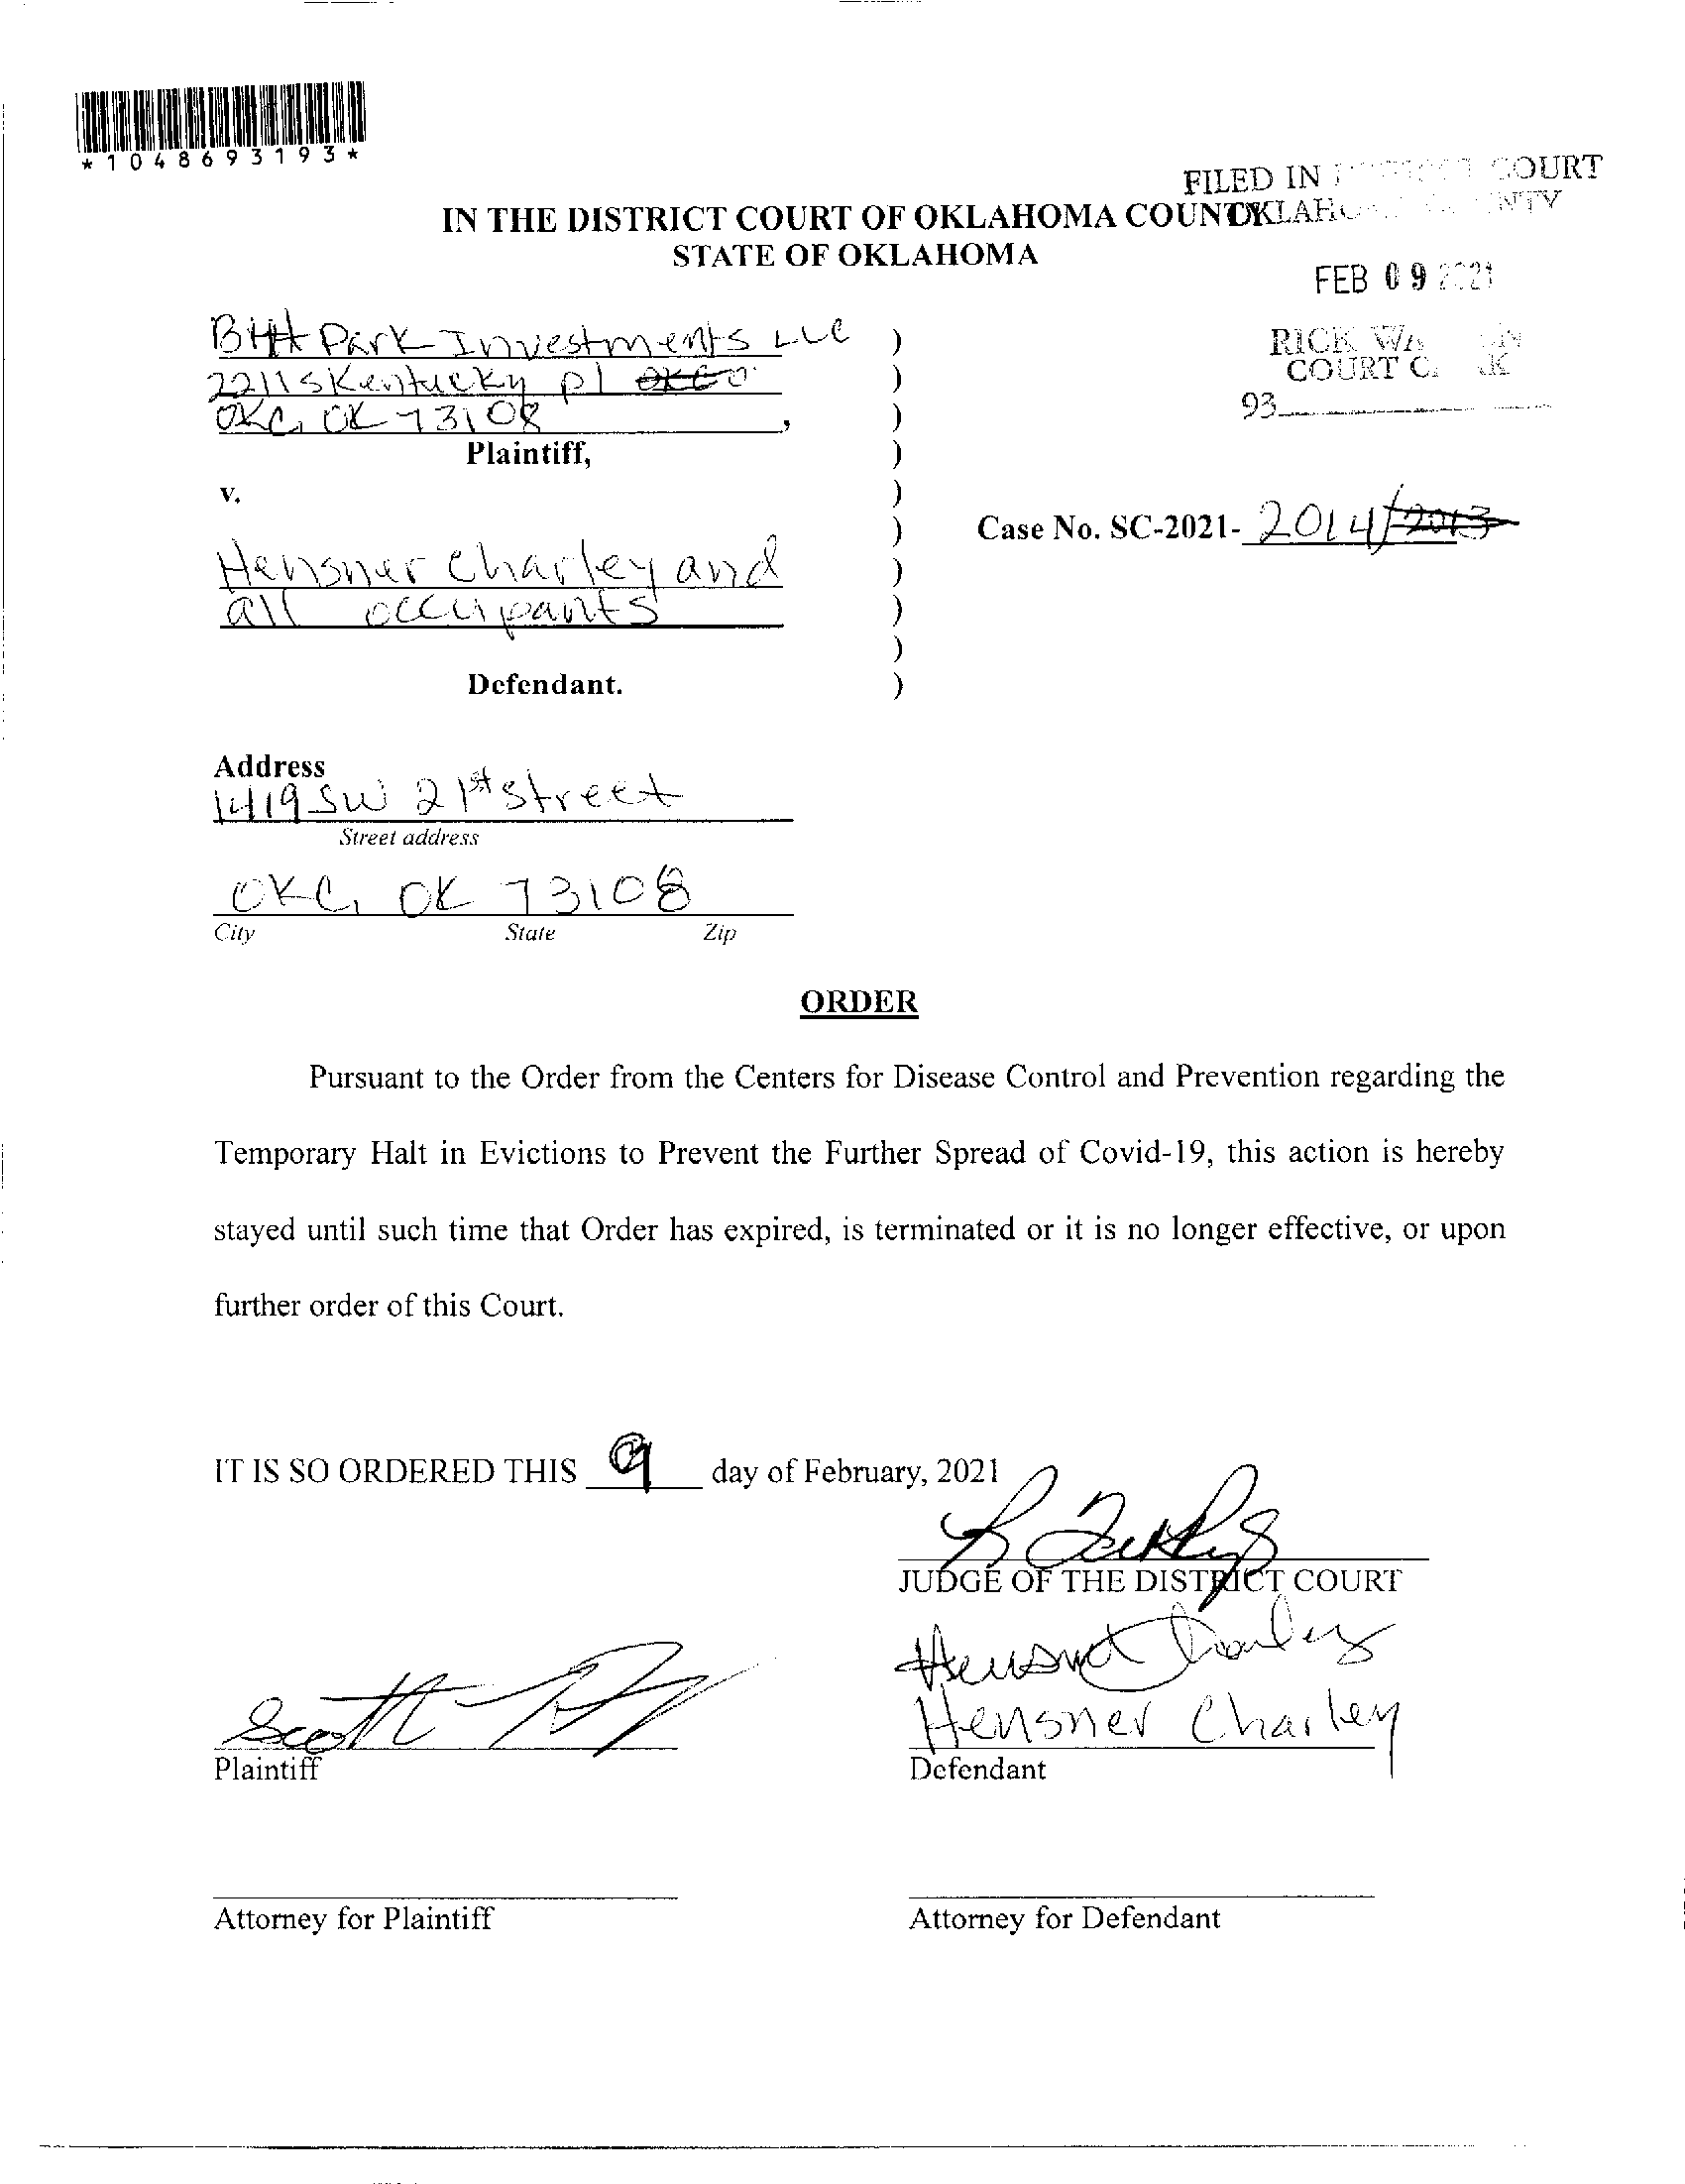 *1048693193*
FILED IN COURT
IN THE DISTRICT COURT OF OKLAHOMA COUNTY
STATE OF OKLAHOMA
FEB 09 2021
Park Investments LLC )
2211 S Kentucky pl )
OKC, OK 73108, )
Plaintiff, )
RICK
COURT
93
v. )
Case No. SC-2021- 2014/2013
Hensner Charley and )
all occupants )
Defendant. )
Address
1419 SW 21st street
Street address
OKC, OK 73108
City State Zip
ORDER
Pursuant to the Order from the Centers for Disease Control and Prevention regarding the
Temporary Halt in Evictions to Prevent the Further Spread of Covid-19, this action is hereby
stayed until such time that Order has expired, is terminated or it is no longer effective, or upon
further order of this Court.
IT IS SO ORDERED THIS 9 day of February, 2021
JUDGE OF THE DISTRICT COURT
Hensner Charley
Scott
Hensner Charley
Plaintiff Defendant
Attorney for Plaintiff Attorney for Defendant